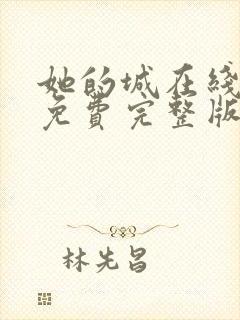 她的城在线
免费完整版
林先昌